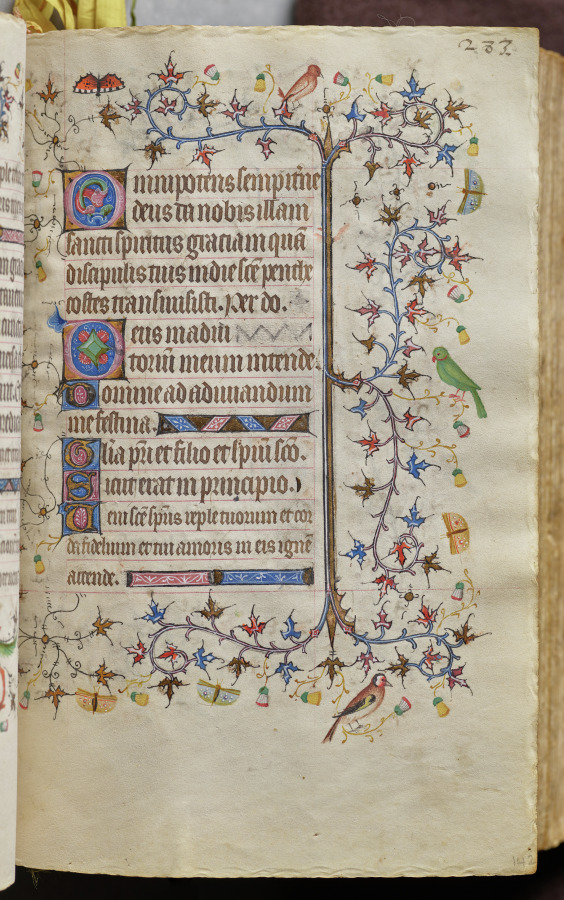 237.
Omnipotens sempit̃ne
deus da nobis illam
sancti spiritus gratiam quã
discipulis tuis in die sc̃e penthe
costes transmisisti. Per do.
Deus in adiu
toriũ meum intende
Domine ad adiuuandum
me festina.
Gl̃ia p̃ri et filio et sp̃iui sc̃o.
Sicut erat in principio.
Ueni sc̃e sp̃us reple tuorum et cor
da fidelium et tui amoris in eis ignẽ
accende.